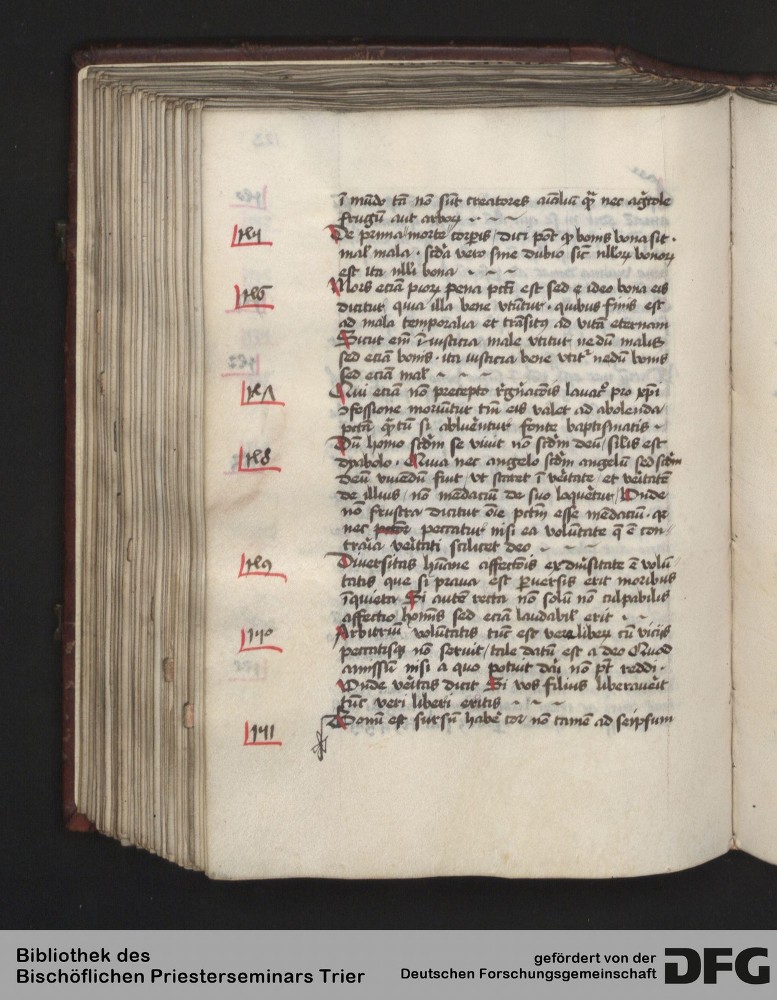 ī mūdo tā nō sūt creatores aīaliū qr̄ nec agr̄cole
frugum aut arboꝝ
De prima morte corpis dici pōt qꝫ bonis bona sit ·
mal' mala · scd̄a vero sine dubio sic' nlloꝝ bonoꝝ
est ita nlli bona
Mors eciam pioꝝ pena pcti est sed et ideo bona eis
dicitur quia illa bene vtūtur · quibus finis est
ad mala temporalia et trāsitꝰ ad vitā eternam
Sicut em̄ īiusticia male vtitur nedū malis
sed eciā bonis · ita iusticia bene vtitr̄ nedū bonis
sed eciā mal'
Qui eciam nō precepto rḡnr̄acōis lauacro pro xp̄i
ꝯfessione moriūtur tm̄ eis valet ad abolenda
pctā qr̄tū si abluerentur fonte baptismatis
Dū homo scd̄m se viuit nō scd̄m deū / silis est
dyabolo · Quia nec angelo scd̄m angelū sed scd̄m
deum viuēdū fuit / vt staret ī veritate / et veritatē
de illius / nō mēdaciū de suo loqueretur / Unde
nō frustra dicitur oē pctm̄ esse mēdaciū · qr
nec peccatur nisi ea volūtate q̄ ē con
traria veritati scilicet deo
Diuersitas hūane affectōis ex diuersitate ē volū
tatis que si praua est peruersis erit moribus
īquieta Si autē recta nō solū nō culpabilis
affectio homīs sed eciā laudabil' erit
Arbitriū volūtatis tūc est vere liberꝝ cū viciis
peccatisqꝫ nō seruit / tale datū est a deo Quod
amissum nisi a quo potuit dari nō pt̄ reddi ·
Unde veritas dicit Si vos filius liberauerit
tūc veri liberi eritis
Bonū est sursū habere cor nō tamen ad seipsum
Bibliothek des
Bischöflichen Priesterseminars Trier
gefördert von der
Deutschen Forschungsgemeinschaft
DFG